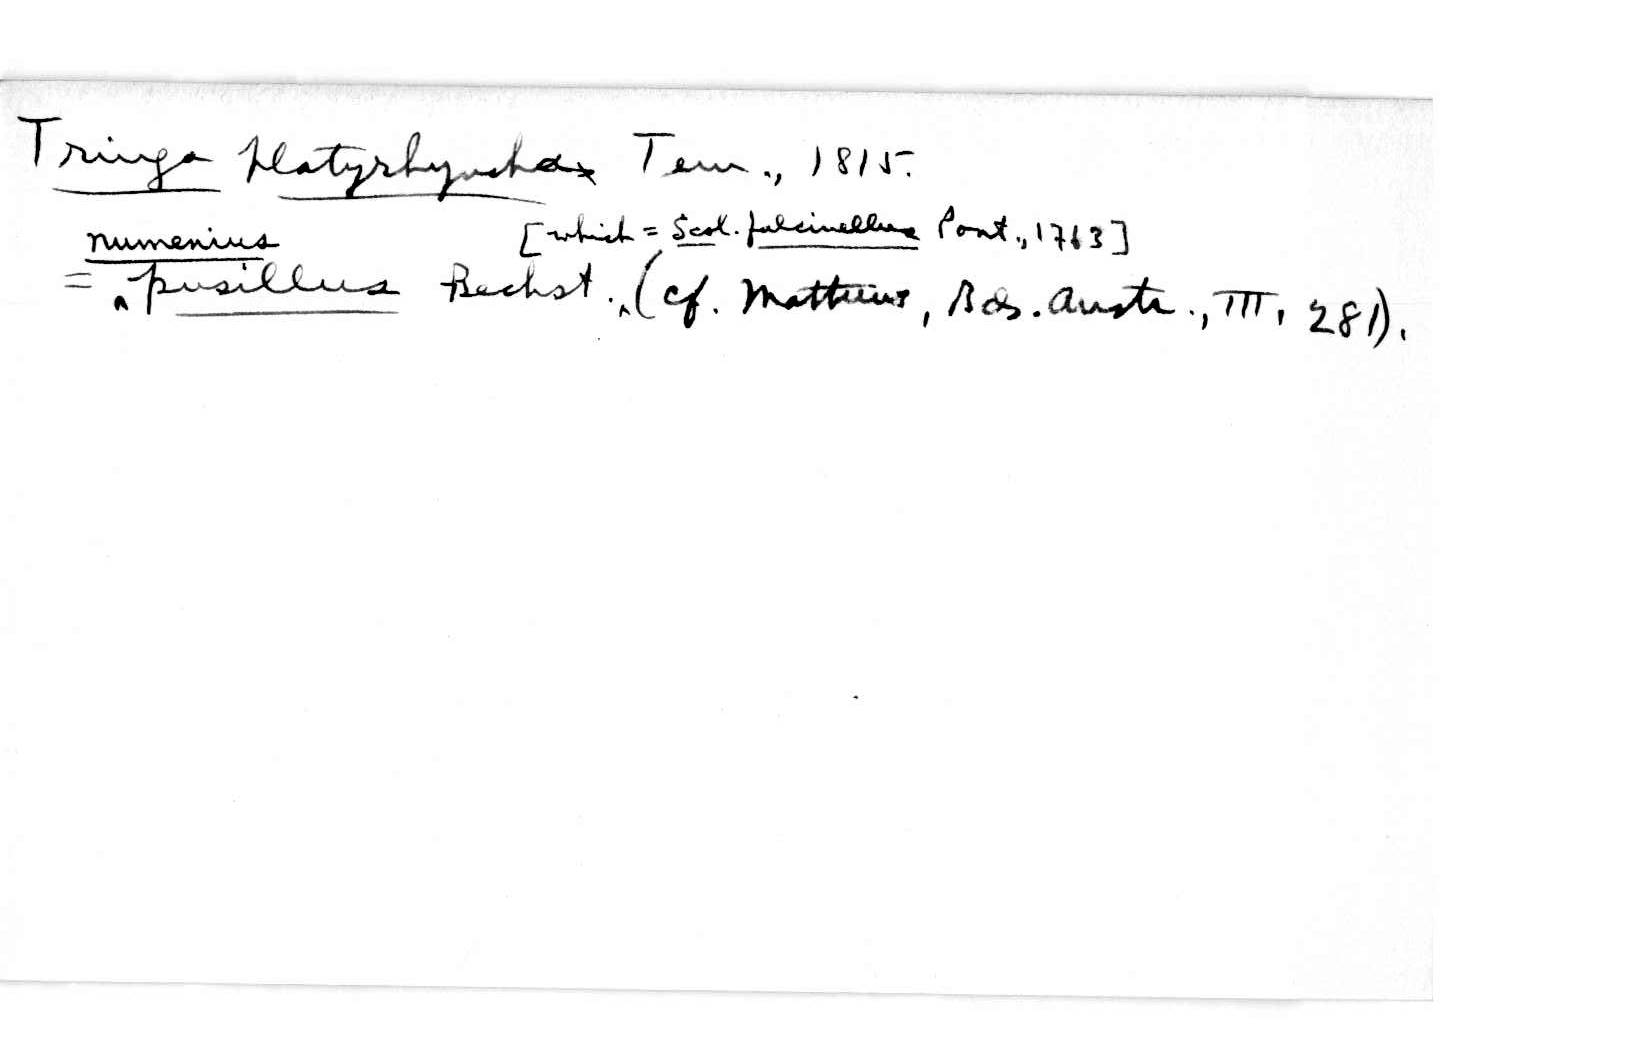 Tringa platyrhyncha Tem., 1815.
numenius [which = Scol. falcinellus Pont., 1763]
= ^ pusillus Bechst. ^ (cf. Mathews, Bds. Austr., III, 281).